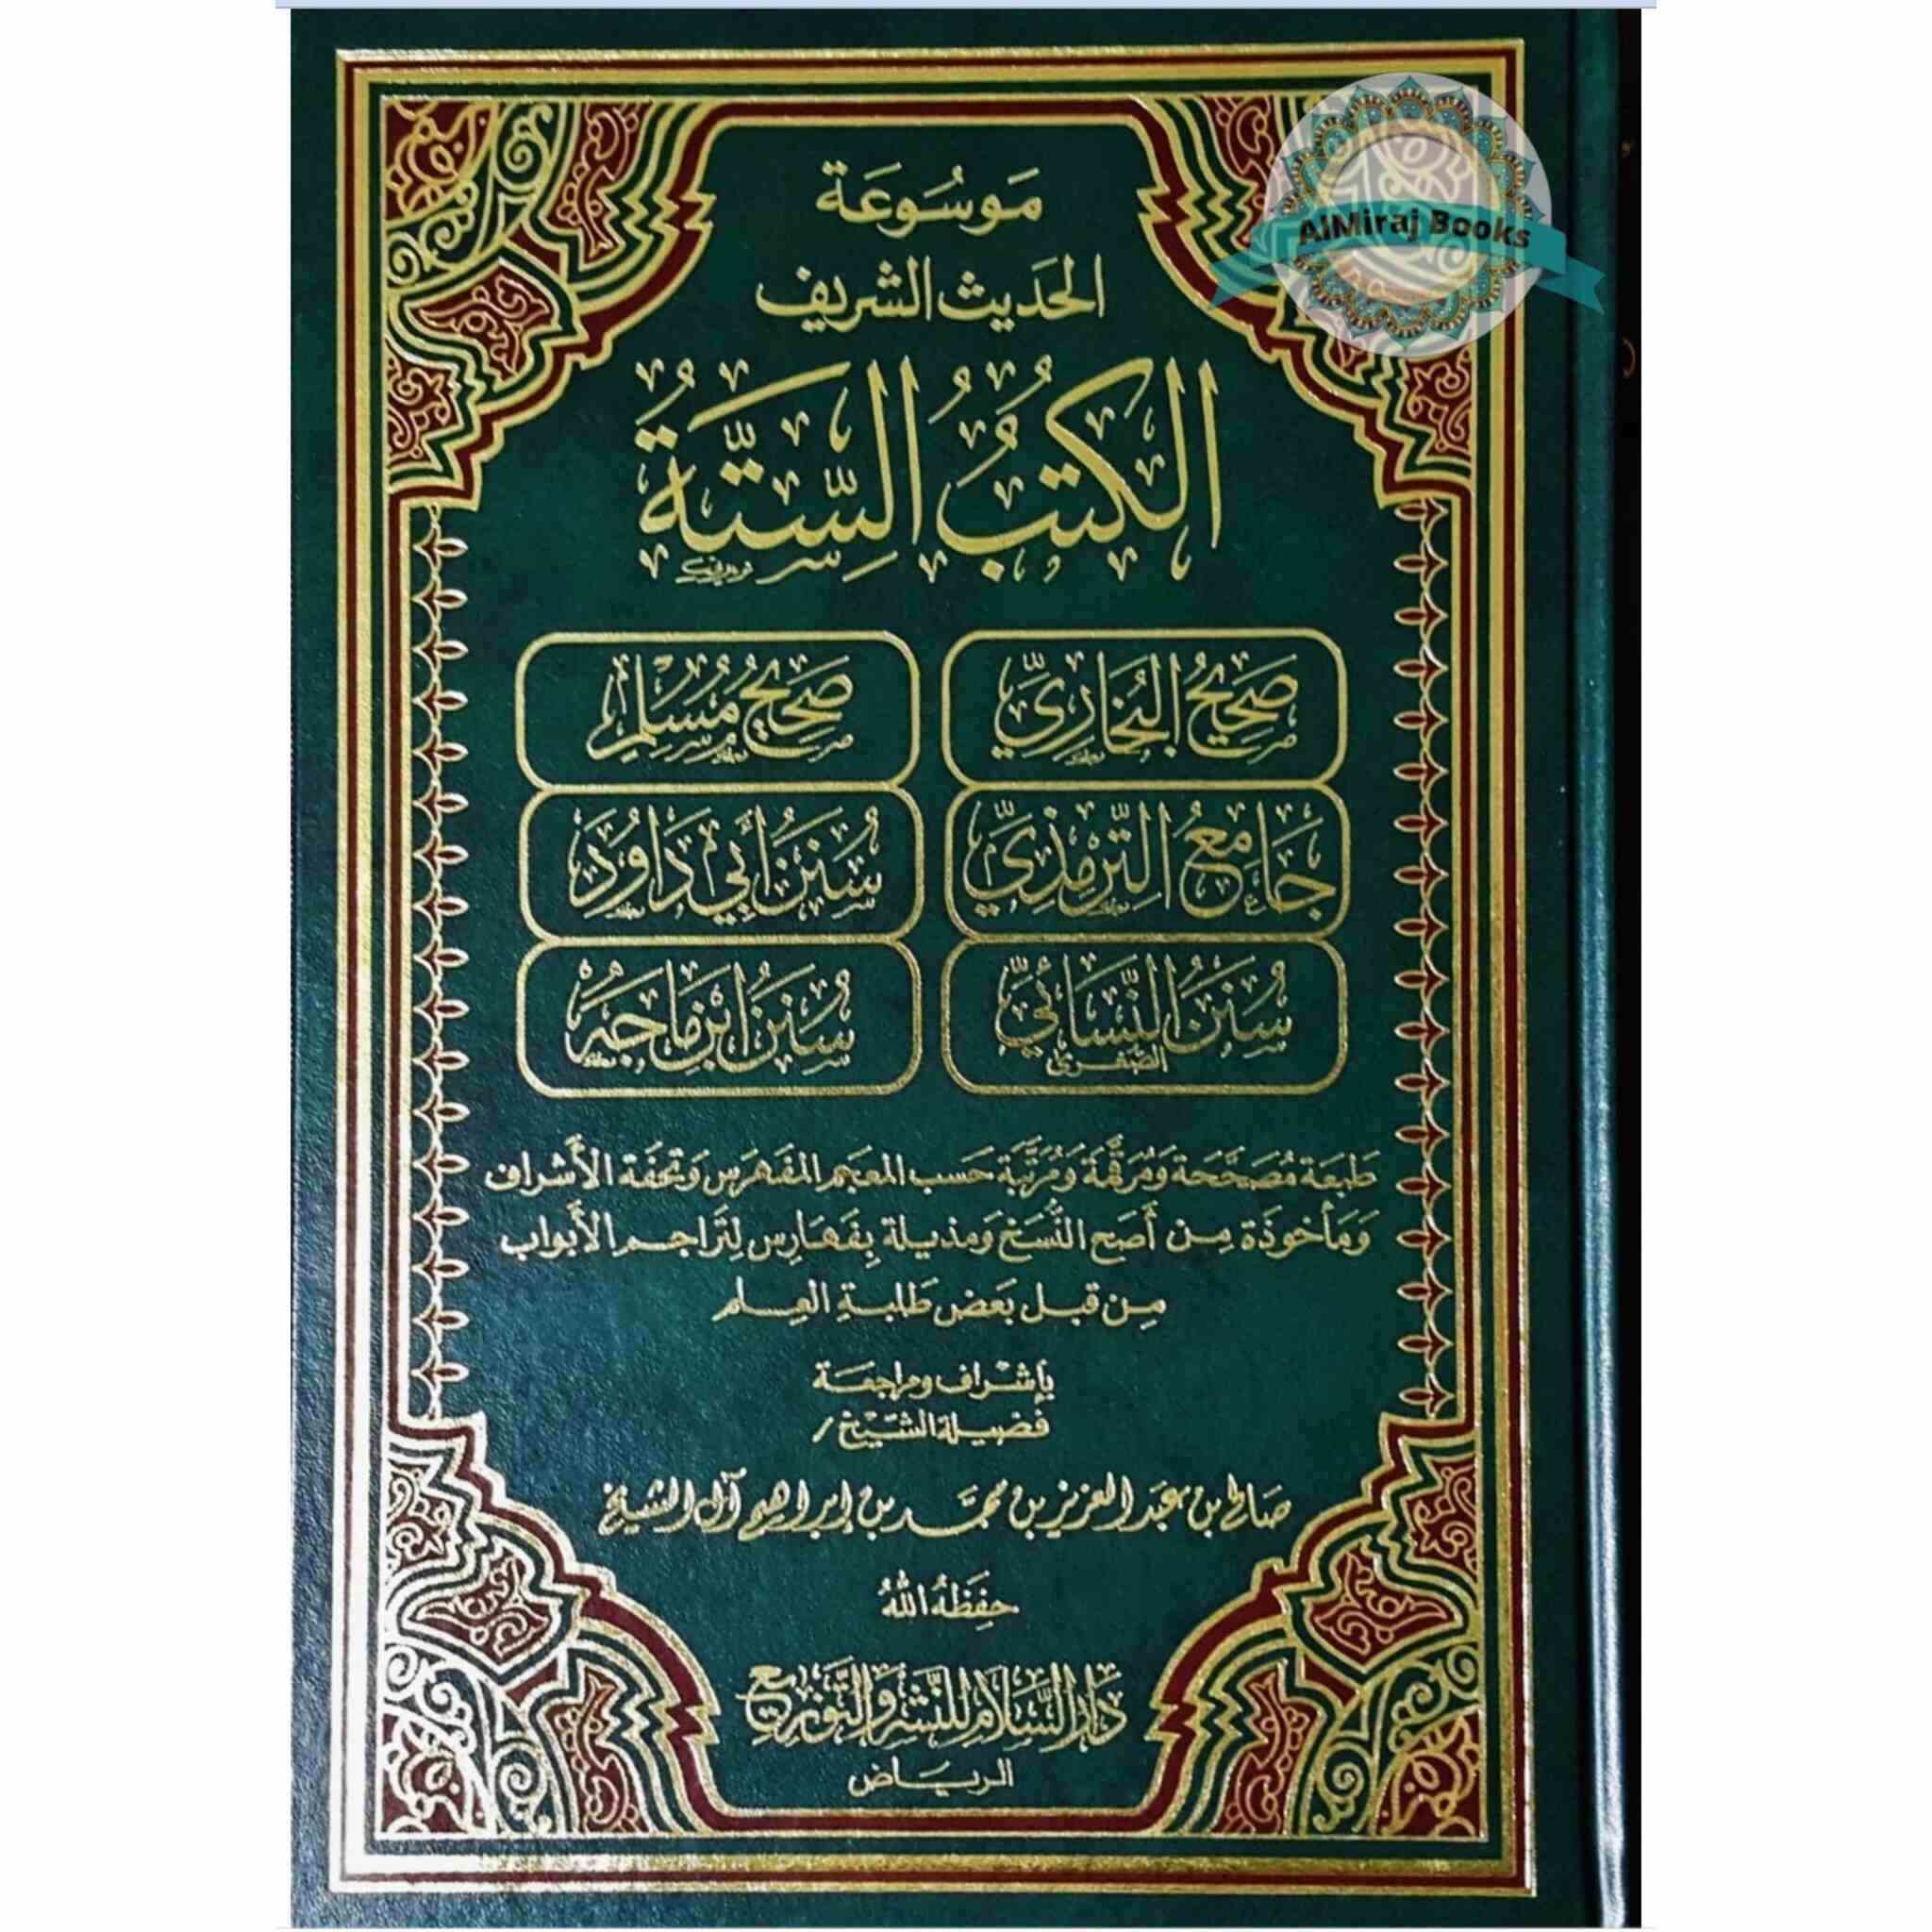 مَوسُوعَة
الحَديث الشريف
الكتُبُ السِّتَّةُ
صَحِيحُ البُخَارِيِّ
صَحِيحُ مُسْلِمٍ
جَامِعُ التِّرْمِذِيِّ
سُنَنُ أَبِي دَاوُدَ
سُنَنُ النَّسَائِيِّ
الصّغرى
سُنَنُ ابْنِ مَاجَهْ
طَبعَة مُصَحَّحَة وَمُرَقَّمَة وَمُرَتَّبَة حَسب المعجم المفَهرَس وَتحفَة الأشراف
وَمَأخوذَة مِن أصَح النُّسَخ وَمذيلة بِفَهَارِس لِتَراجم الأبواب
مِن قبل بَعض طَلبةِ العِلم
بإشراف ومراجعة
فضيلة الشيخ /
صَالح بن عَبد العزيز بن محمَّد بن إبراهيم آل الشيخ
حفِظَهُ اللهُ
دَارُ السَّلَام لِلنَّشر وَالتَّوزيع
الريَاض
AlMiraj Books